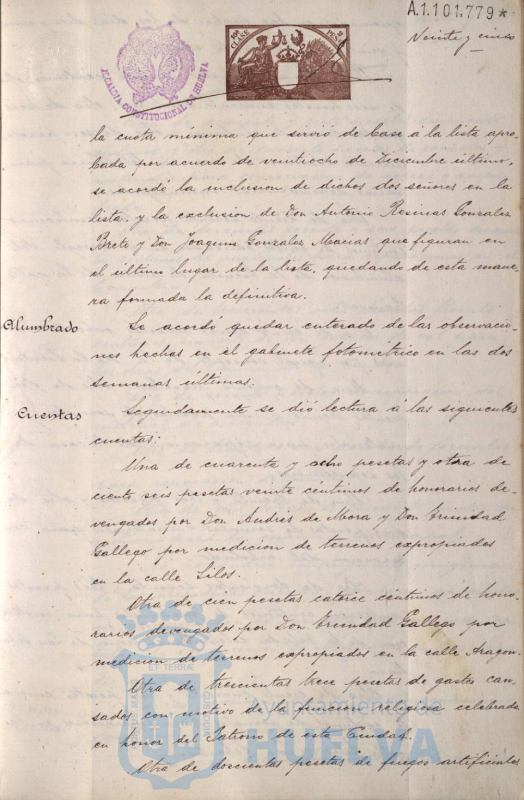 A.1.101.779*
Veinte y cinco
ALCALDIA CONSTITUCIONAL DE HUELVA
10ª CLASE
2 PESETAS
la cuota mínima que sirvió de base á la lista apro-
bada por acuerdo de veintiocho de Diciembre último,
se acordó la inclusion de dichos dos señores en la
lista, y la exclusion de Don Antonio Resinas Gonzalez
Brete y Don Joaquin Gonzalez Macias que figuran en
el último lugar de la lista, quedando de esta mane-
ra formada la definitiva.
Alumbrado
Se acordó quedar enterado de las observacio-
nes hechas en el gabinete fotométrico en las dos
semanas últimas.
Cuentas
Seguidamente se dió lectura á las siguientes
cuentas:
Una de cuarenta y ocho pesetas y otra de
ciento seis pesetas veinte céntimos de honorarios de-
vengados por Don Andrés de Mora y Don Trinidad
Gallego por medicion de terrenos expropiados
en la calle Silos.
Otra de cien pesetas catorce céntimos de hono-
rarios devengados por Don Trinidad Gallego por
medicion de terrenos expropiados en la calle Aragon.
Otra de trescientas trece pesetas de gastos cau-
sados con motivo de la funcion religiosa celebrada
en honor del Patrono de esta Ciudad.
Otra de doscientas pesetas de fuegos artificiales
Ayuntamiento de
HUELVA